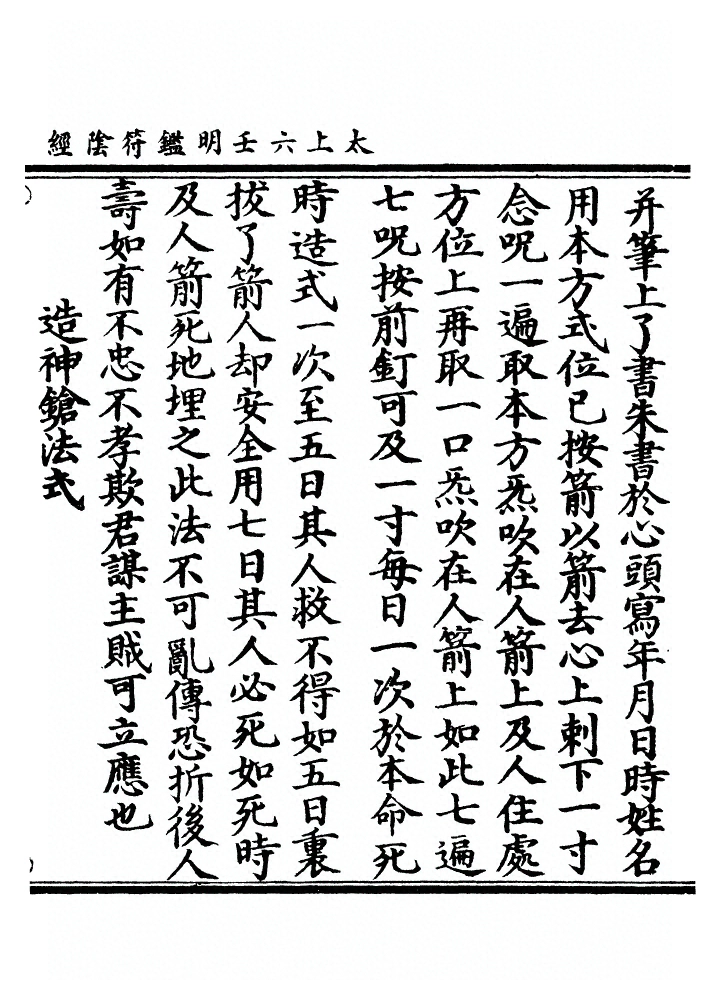 太上六壬明鑑符陰經
并筆上了書朱書於心頭寫年月日時姓名
用本方式位已按箭以箭去心上刺下一寸
念呪一遍取本方炁吹在人箭上及人住處
方位上再取一口炁吹在人箭上如此七遍
七呪按前釘可及一寸每日一次於本命死
時造式一次至五日其人救不得如五日裏
拔了箭人却安全用七日其人必死如死時
及人箭死地埋之此法不可亂傳恐折後人
壽如有不忠不孝欺君謀主賊可立應也
造神鎗法式